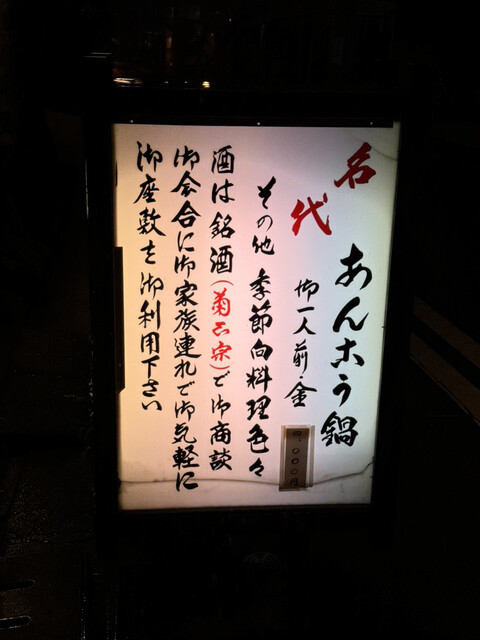 名代
あんこう鍋
御一人前・金
四、〇〇〇円
その他 季節向料理色々
酒は銘酒(菊正宗)で御商談
御会合に御家族連れで御気軽に
御座敷を御利用下さい